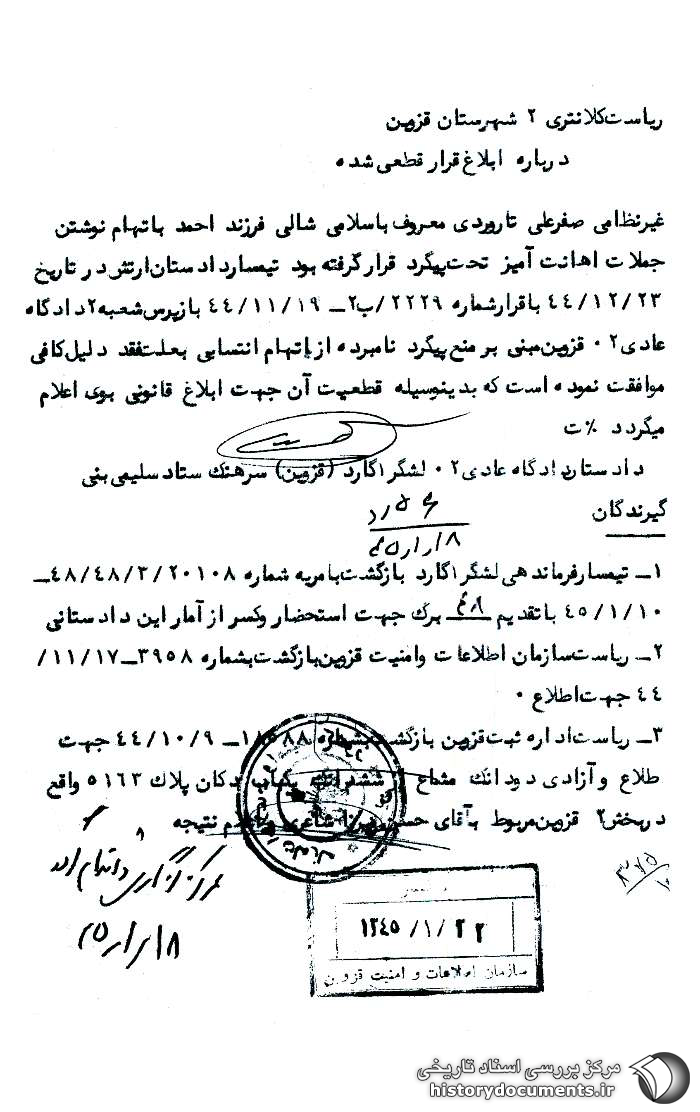 ریاست کلانتری ۲ شهرستان قزوین
درباره ابلاغ قرار قطعی شده
غیرنظامی صفرعلی تاروردی معروف باسلامی شالی فرزند احمد باتهام نوشتن
جملات اهانت آمیز تحت پیگرد قرار گرفته بود تیمسار دادستان ارتش در تاریخ
۴۴/۱۲/۲۳ باقرار شماره ۲۲۲۹/ب۲ــ ۴۴/۱۱/۱۹ بازپرس شعبه ۲ دادگاه
عادی ۲۰ قزوین مبنی بر منع پیگرد نامبرده از اتهام انتسابی بعلت فقد دلیل کافی
موافقت نموده است که بدینوسیله قطعیت آن جهت ابلاغ قانونی بوی اعلام
میگردد ٪ت
دادستان دادگاه عادی ۲۰ لشگر ۱ گارد (قزوین) سرهنگ ستاد سلیمی بنی
گیرندگان
۱ــ تیمسار فرماندهی لشگر ۱ گارد بازگشت بامریه شماره ۴۸/۴۸/۳/۲۰۱۰۸ــ
۴۵/۱/۱۰ باتقدیم برگ جهت استحضار وکسر از آمار این دادستانی
۲ــ ریاست سازمان اطلاعات وامنیت قزوین بازگشت بشماره ۳۹۵۸ــ۱۱/۱۷/
۴۴ جهت اطلاع ۰
۳ــ ریاست اداره ثبت قزوین بازگشت بشماره ــ ۴۴/۱۰/۹ جهت
طلاع و آزادی دودانگ مشاع از ششدانگ یکباب دکان پلاک ۵۱۶۳ واقع
دربخش ۲ قزوین مربوط بآقای و اعلام نتیجه
۱۳۴۵/۱/۲۲
سازمان اطلاعات و امنیت قزوین
مرکز بررسی اسناد تاریخی
historydocuments.ir